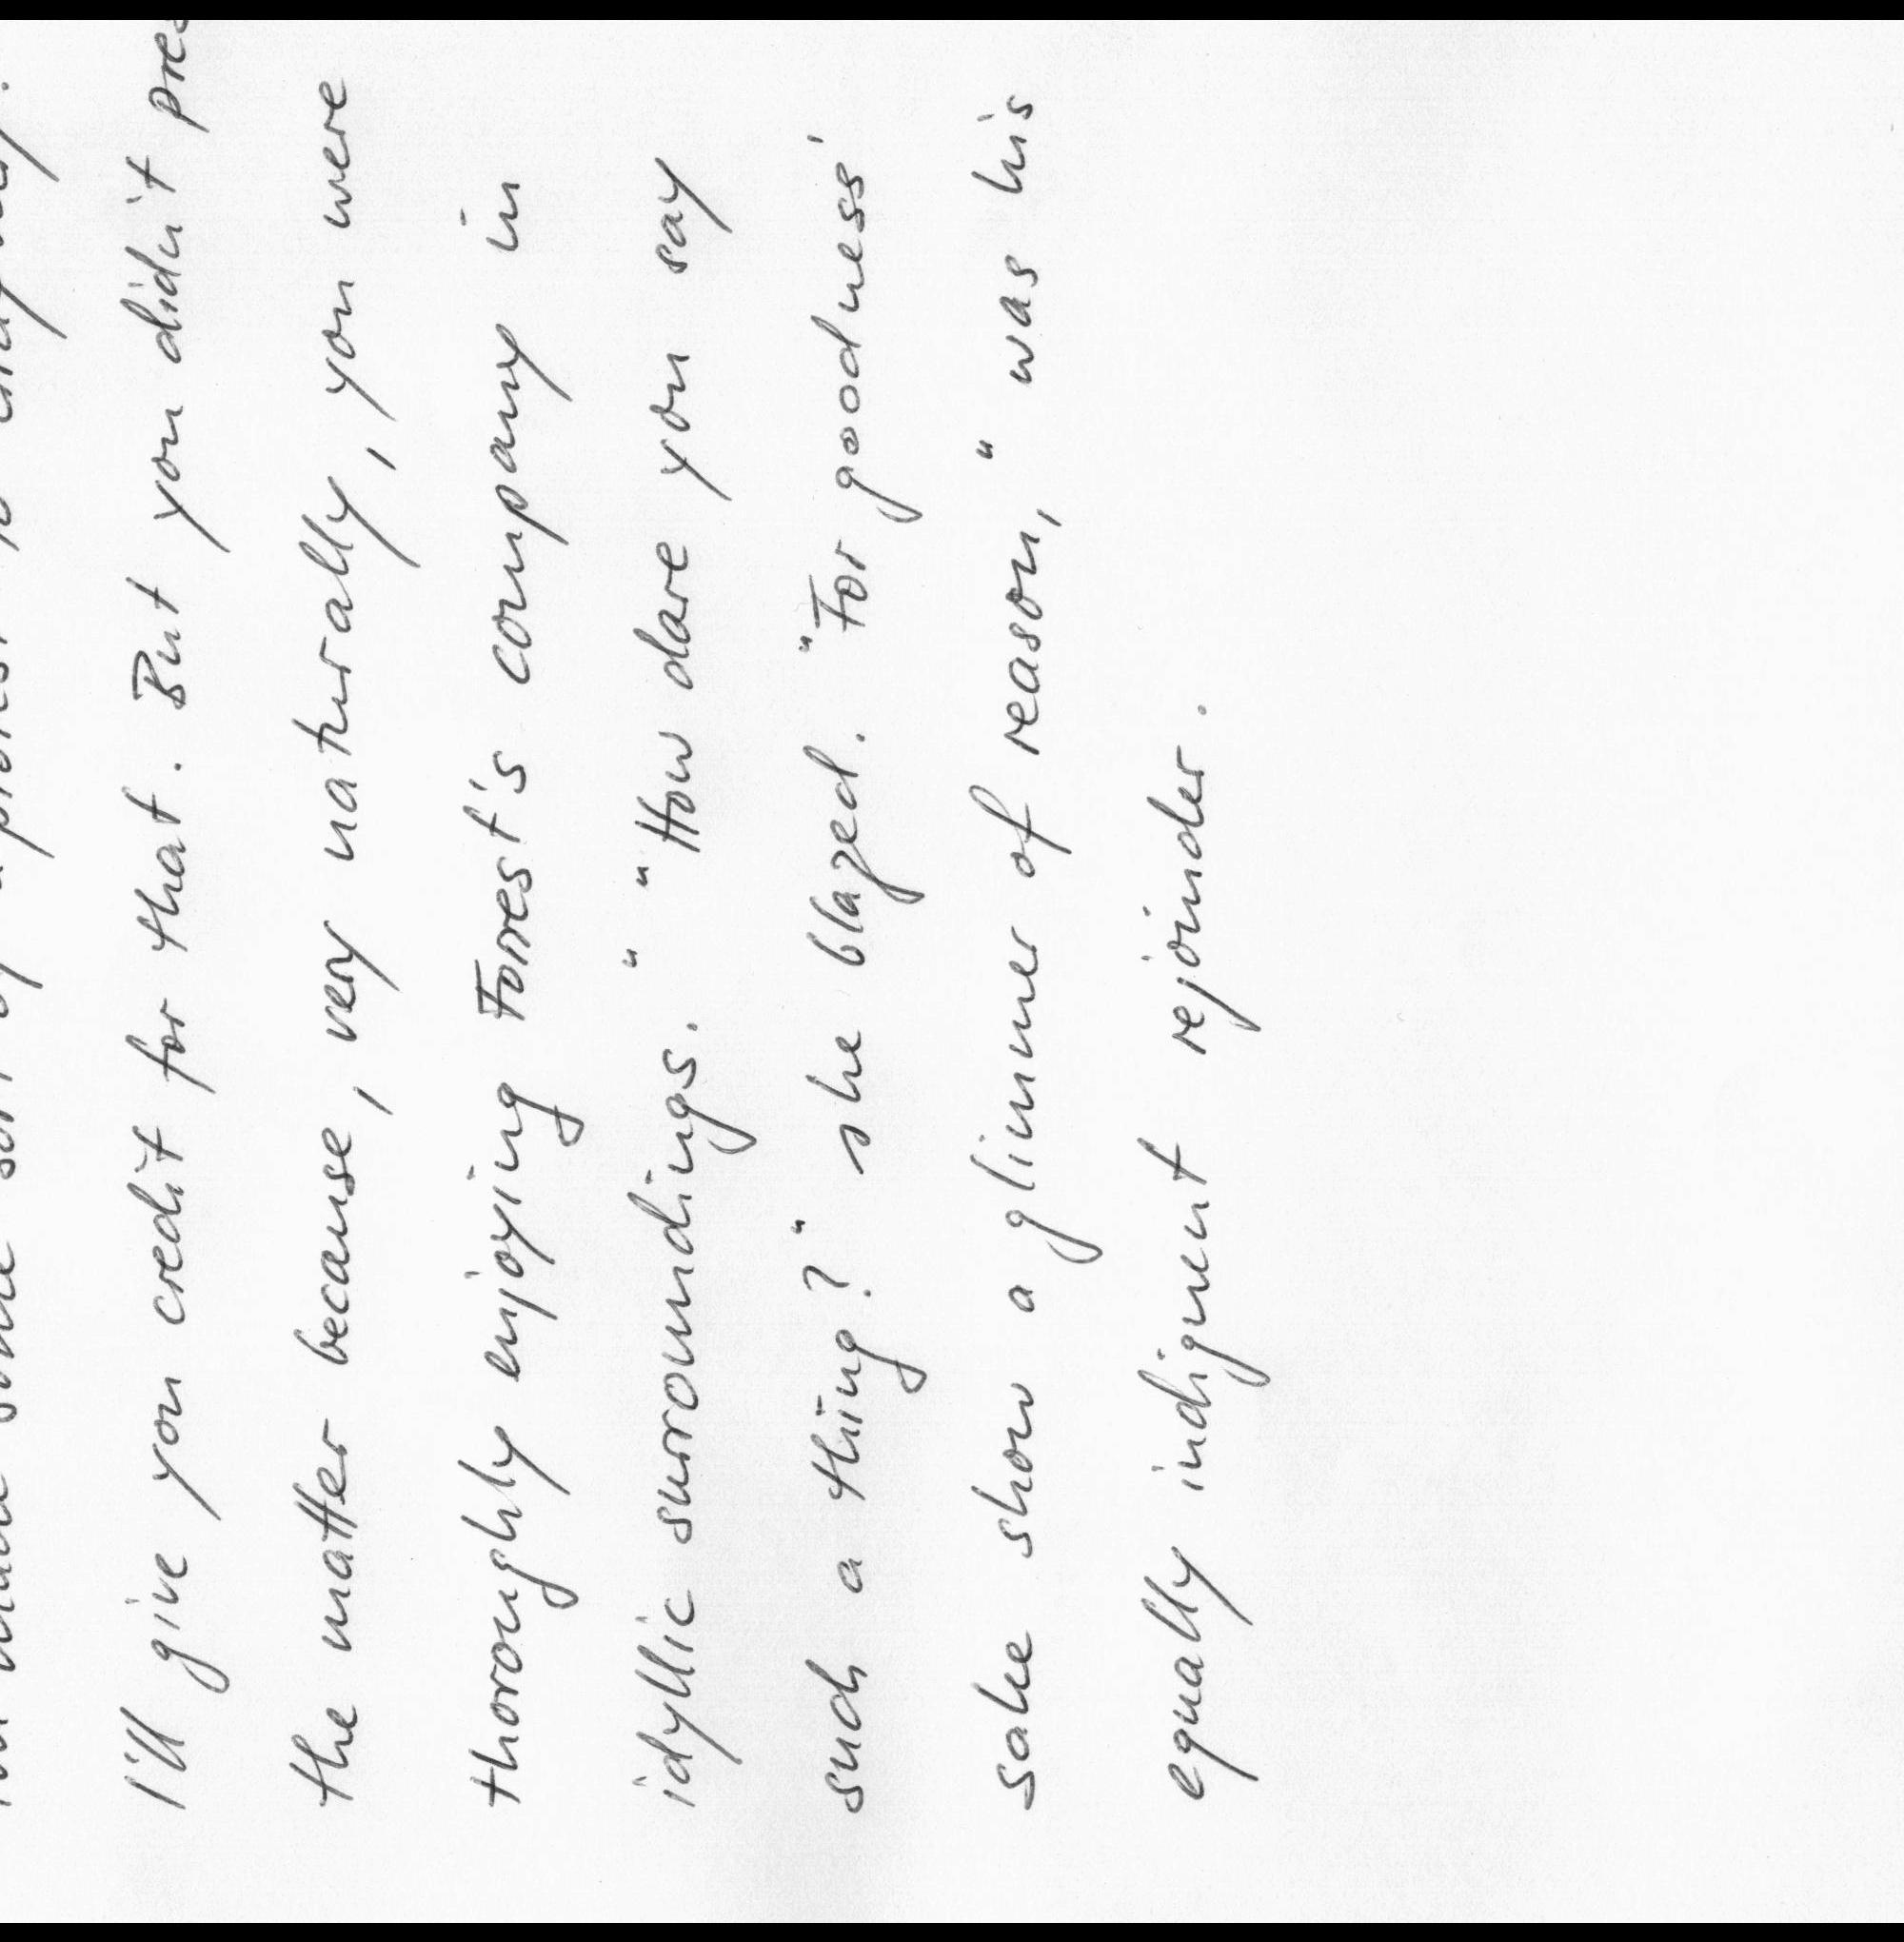 I'll give you credit for that. But you didn't
the matter because, very naturally, you were
thoroughly enjoying Forrest's company in
idyllic surroundings." "How dare you say
such a thing?" she blazed. "For goodness'
sake show a glimmer of reason," was his
equally indignent rejoinder.